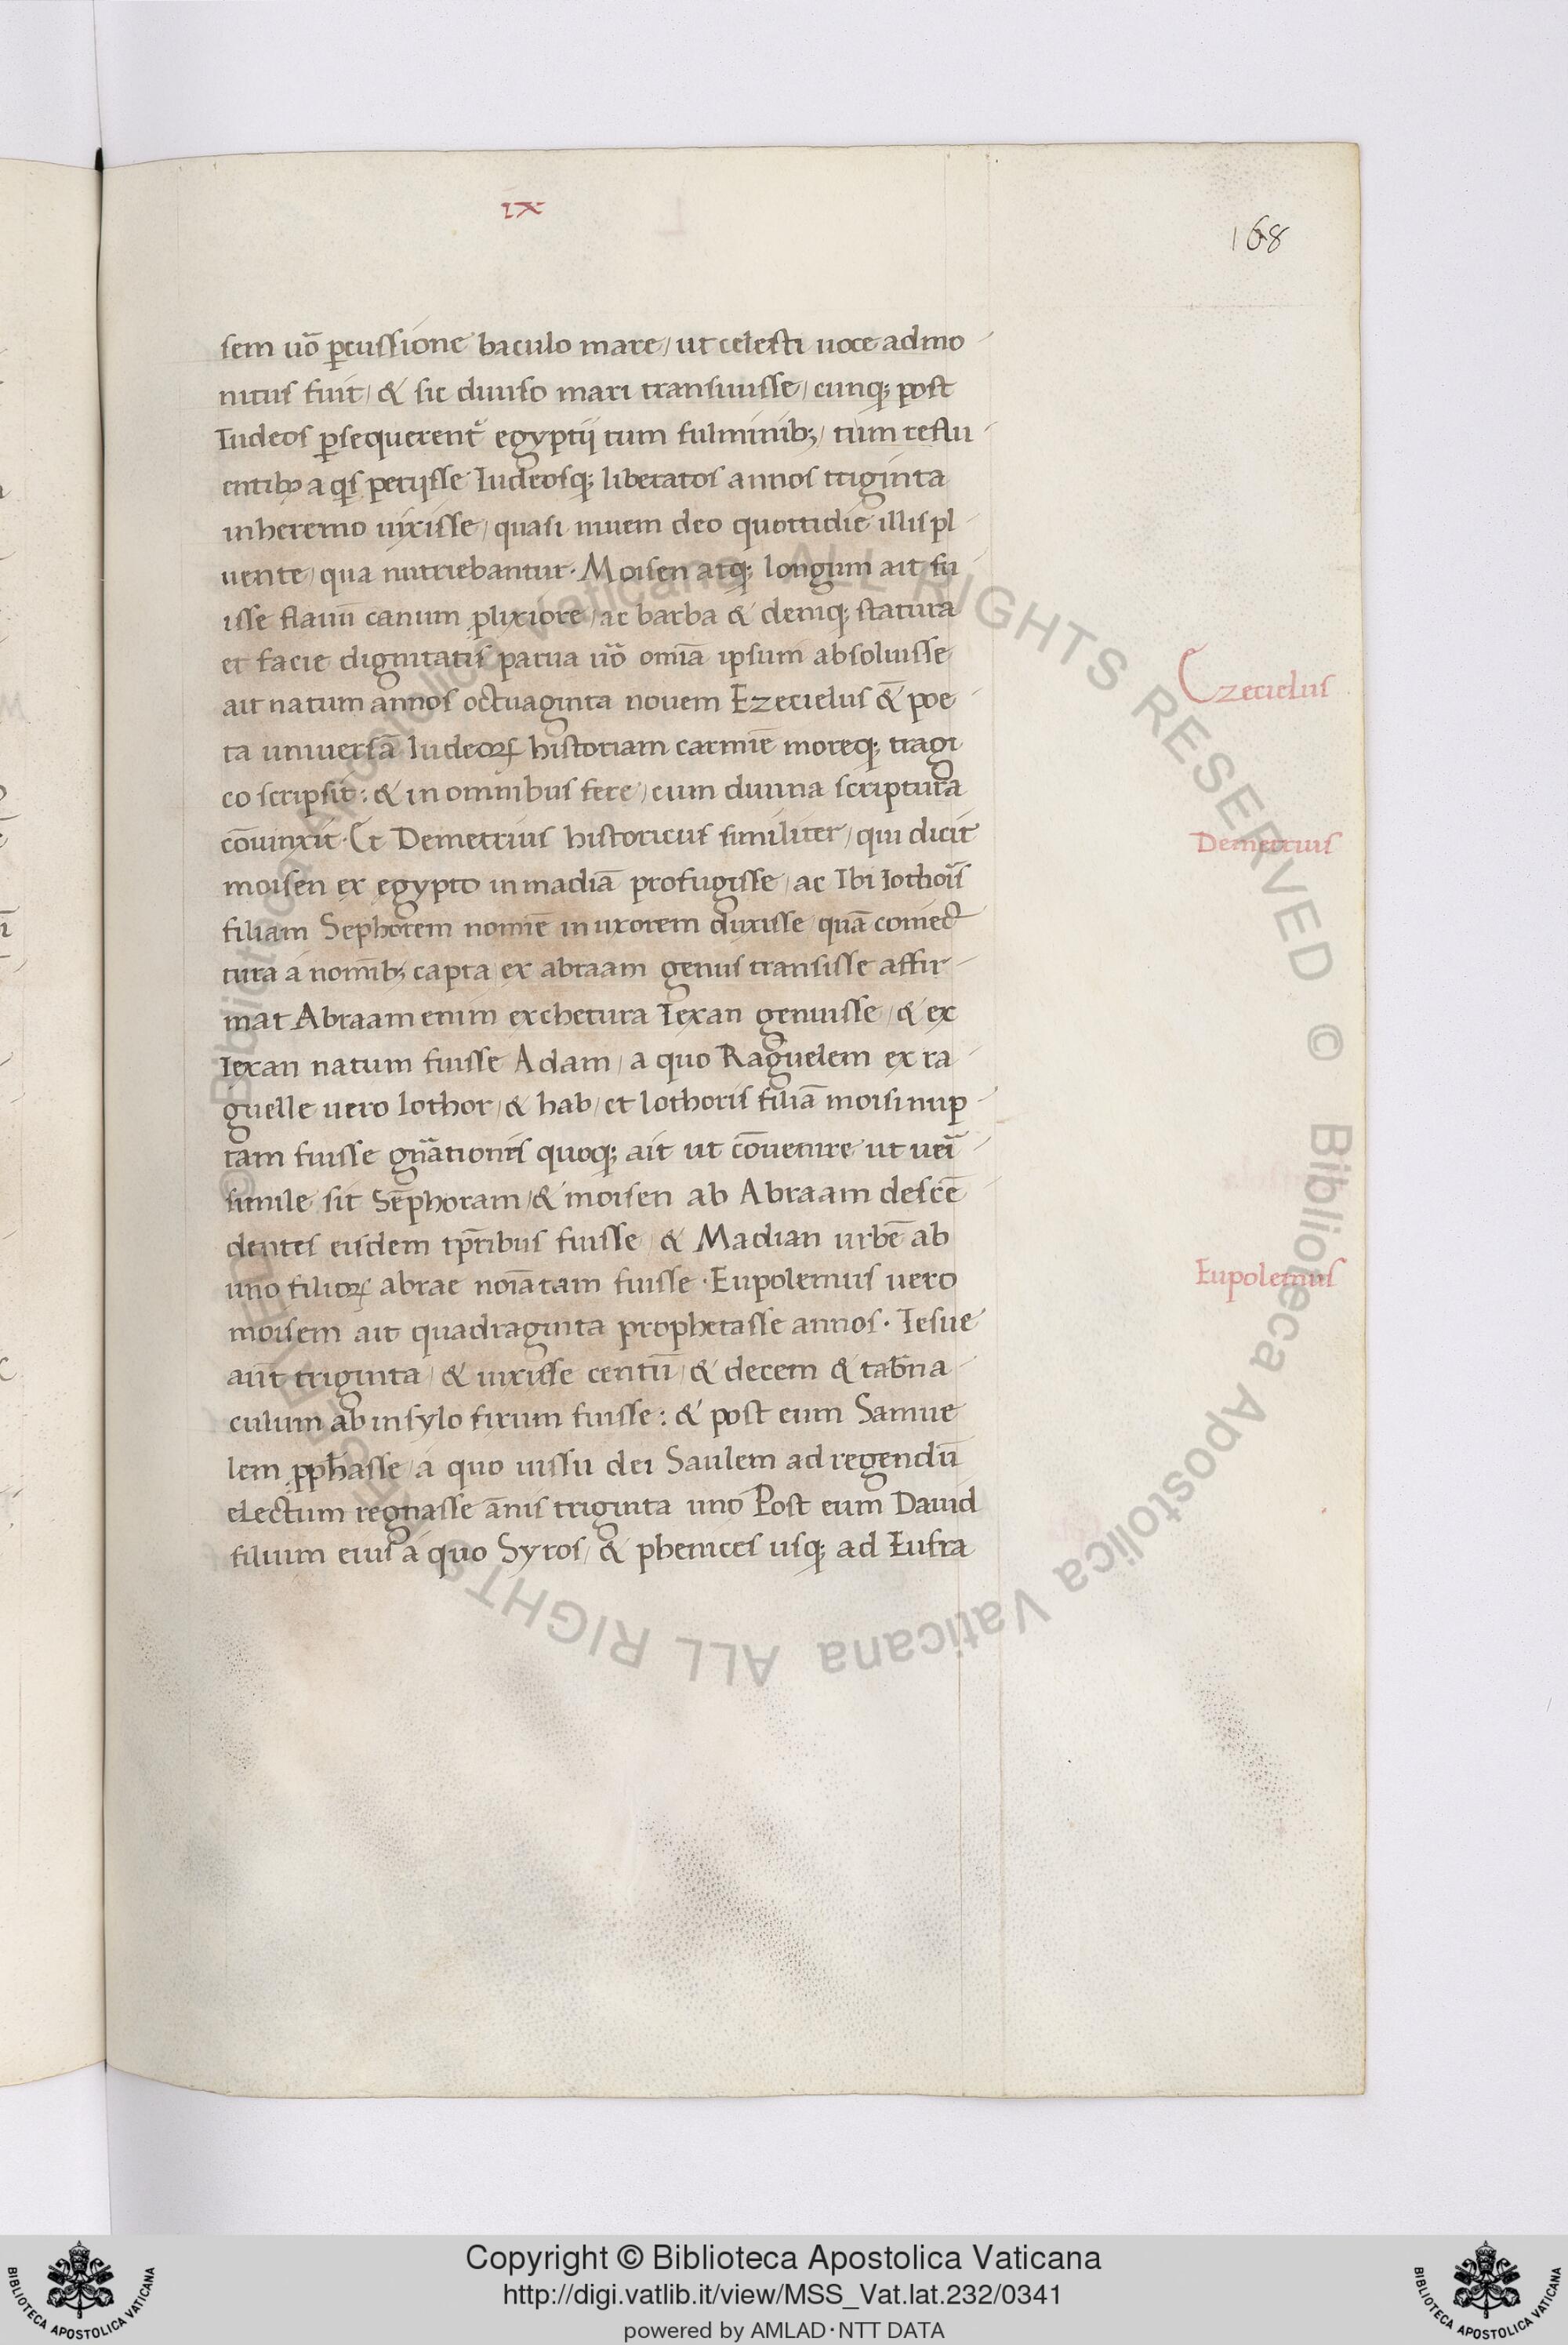 ix
168
sem uō ꝑcussione baculo mare / ut celesti uoce admo
nitus fuit / & sic diuiso mari transiuisse / cunqꝫ post
Iudeos ꝑsequerent᷑ egyptij tum fulminibꝫ / tum reflu
entibꝫ a qͥs perijsse Iudeosqꝫ liberatos annos triginta
in heremo uixisse / quasi niuem deo quottidie illis pl
uente / qua nutriebantur. Moisen atqꝫ longum ait fu
isse flauū canum ꝓlixiore / ac barba & deniqꝫ statura
et facie dignitatis parua uō omīa ipsum absoluisse
ait natum annos octuaginta novem Ezecielus & poe
ta uniuersā Iudeoꝝ historiam carmīe moreqꝫ tragi
co scripsit: & in omnibus fere / cum diuina scriptura
cōuinxit. Et Demetrius historicus similiter / qui dicit
moisen ex egypto in madiā profugisse / ac Ibi Iothoris
filiam Sephorem nomīe in uxorem duxisse / quā coniec
tura a nomībꝫ capta / ex abraam genus transisse affir
mat Abraam enim ex chetura Iexan genuisse / & ex
Iexan natum fuisse Adam / a quo Raguelem ex ra
guelle uero Iothor / & hab / et Iothoris filiā moisi nup
tam fuisse gn̄ationis quoqꝫ ait ut cōuenire ut ueri
simile sit Sēphoram / & moisen ab Abraam descē
dentes eisdem tp̄ribus fuisse / & Madian urbē ab
uno filioꝝ abrae noīatam fuisse. Eupolemus uero
moisem ait quadraginta prophetasse annos. Iesue
aūt triginta / & uixisse centū / & decem & tab̄na
culum ab in sylo firum fuisse: & post eum Samue
lem ꝓph̄asse / a quo uissu dei Saulem ad regendū
electum regnasse ānis triginta uno Post eum Dauid
filium eius a quo Syros / & phenices usqꝫ ad Eufra
Ezecielus
Demetrius
Eupolemus
© Biblioteca Apostolica Vaticana ALL RIGHTS RESERVED © Biblioteca Apostolica Vaticana ALL RIGHTS RESERVED
BIBLIOTECA APOSTOLICA VATICANA
Copyright © Biblioteca Apostolica Vaticana
http://digi.vatlib.it/view/MSS_Vat.lat.232/0341
powered by AMLAD·NTT DATA
BIBLIOTECA APOSTOLICA VATICANA